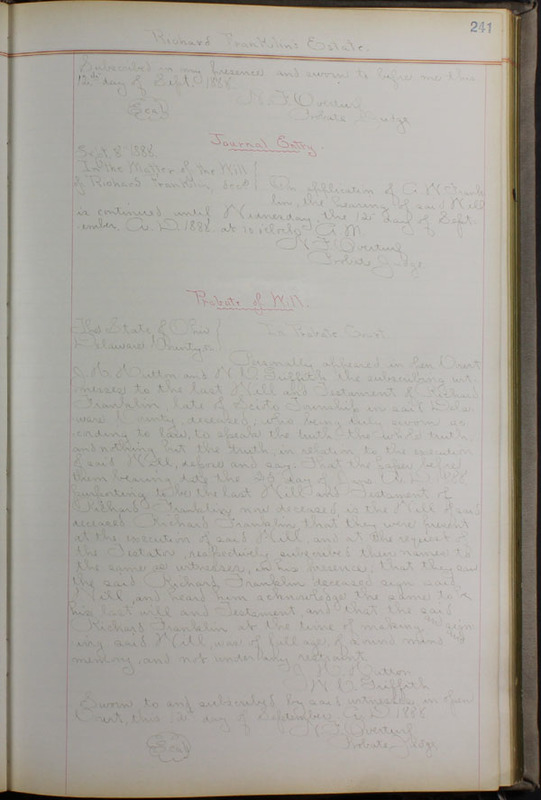 241
Richard Franklins Estate.
Subscribed in my presence and sworn to before me this
12th day of Sept. 1888.
(Seal) N. F. Overturf
Probate Judge
Journal Entry.
Sept 8" 1888.
In the Matter of the Will
of Richard Franklin, decd On application of C. W. Frank-
lin, the hearing of said Will
is continued until Wednesday, the 12" day of Sept-
ember A. D. 1888 at 10 o'clock A. M.
N. F. Overturf
Probate Judge
Probate of Will.
The State of Ohio
Delaware County, ss In Probate Court.
Personally appeared in open Court
and W. Q. Griffith the subscribing wit-
nesses to the last Will and Testament of Richard
Franklin, late of Scioto Township in said Dela-
ware County, deceased, who being duly sworn ac-
cording to law, to speak the truth the whole truth,
and nothing but the truth, in relation to the execution
of said Will, depose and say, That the paper before
them bearing date the day of June A. D. 1888
purporting to be the last Will and Testament of
Richard Franklin, now deceased, is the Will of said
deceased Richard Franklin that they were present
at the execution of said Will, and at the request of
the Testator, respectively subscribed their names to
the same as witnesses, in his presence; that they saw
the said Richard Franklin deceased sign said
Will, and heard him acknowledge the same to be
his last will and Testament, and that the said
Richard Franklin at the time of making and sign-
ing said Will, was of full age, of sound mind and
memory, and not under any restraint.
W. Q. Griffith
Sworn to and subscribed by said witnesses in open
Court, this 12" day of September A. D. 1888
N. F. Overturf
(Seal) Probate Judge